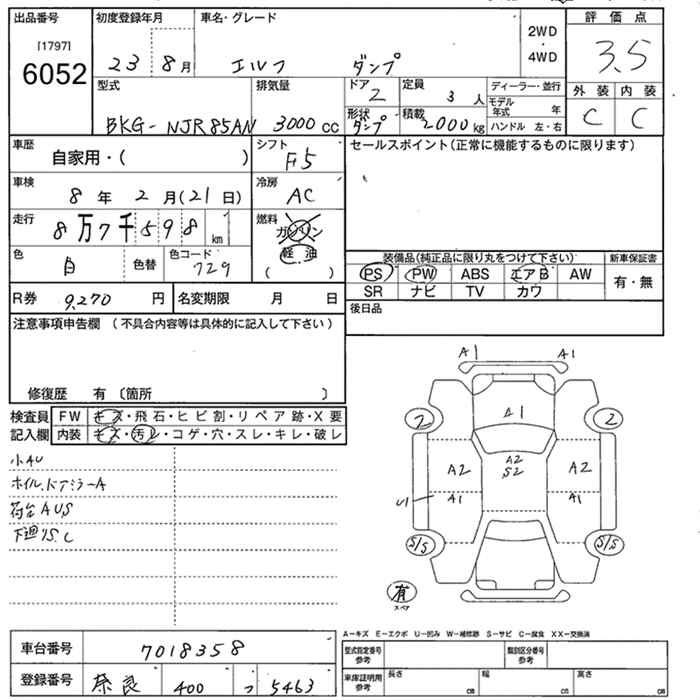 出品番号 初度登録年月 車名・グレード 2WD ・ 4WD 評価点
[1797]
6052 23 8月 エルフ ダンプ 3.5
型式 排気量 ドア 2 定員 3人 ディーラー・並行 外装 内装
BKG-NJR85AN 3000cc 形状 ダンプ 積載 2000kg モデル年式 年 C C
ハンドル 左・右
車歴 自家用・( ) シフト F5 セールスポイント(正常に機能するものに限ります)
車検 8年 2月(21日) 冷房 AC
走行 8万7千598km 燃料 ガソリン
軽油
( )
色 白 色替 色コード 729 装備品(純正品に限り丸をつけて下さい) 新車保証書
PS PW ABS エアB AW 有・無
SR ナビ TV カワ
R券 9,270円 名変期限 月 日 後日品
注意事項申告欄(不具合内容等は具体的に記入して下さい)
修復歴 有 〔箇所 〕
検査員 FW キズ・飛石・ヒビ割・リペア跡・X要
記入欄 内装 キズ・汚レ・コゲ・穴・スレ・キレ・破レ
小AU
ホイル、ドアミラーA
荷台AUS
下廻りS.C
A1 A1
A1
2 2
A2 A2 S2 A2
U1 A1 A1
S/S S/S
有
スペア
A-キズ E-エクボ U-凹み W-補修跡 S-サビ C-腐食 XX-交換済
車台番号 7018358 型式指定番号 参考 類別区分番号 参考
登録番号 奈良 400 つ 5463 車庫証明用 参考 長さ cm 幅 cm 高さ cm